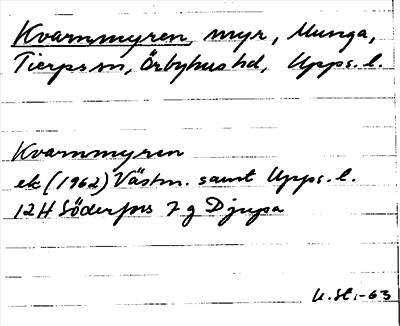 Kvarnmyren, myr, Munga,
Tierps sn, Örbyhus hd, Upps. l.
Kvarnmyren
ek (1962) Västm. samt Upps. l.
12H Söderfors 7 g Djupa
U. St. -63